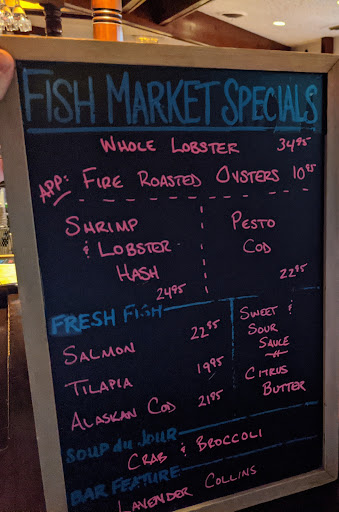 FISH MARKET SPECIALS
WHOLE LOBSTER 34.95
APP: FIRE ROASTED OYSTERS 10.95
SHRIMP
& LOBSTER
HASH
24.95
PESTO
COD
22.95
FRESH FISH
SALMON 22.95
TILAPIA 19.95
ALASKAN COD 21.95
SWEET &
SOUR
SAUCE
CITRUS
BUTTER
SOUP du JOUR
CRAB & BROCCOLI
BAR FEATURE
LAVENDER COLLINS